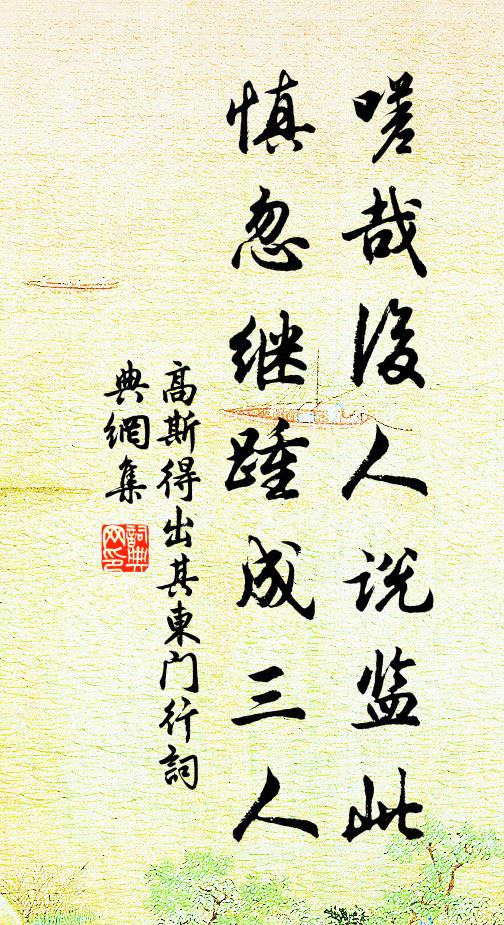 嗟哉後人说监此
慎忽继踵成三人
高斯得出其東门行詞
典網集
詞典网印